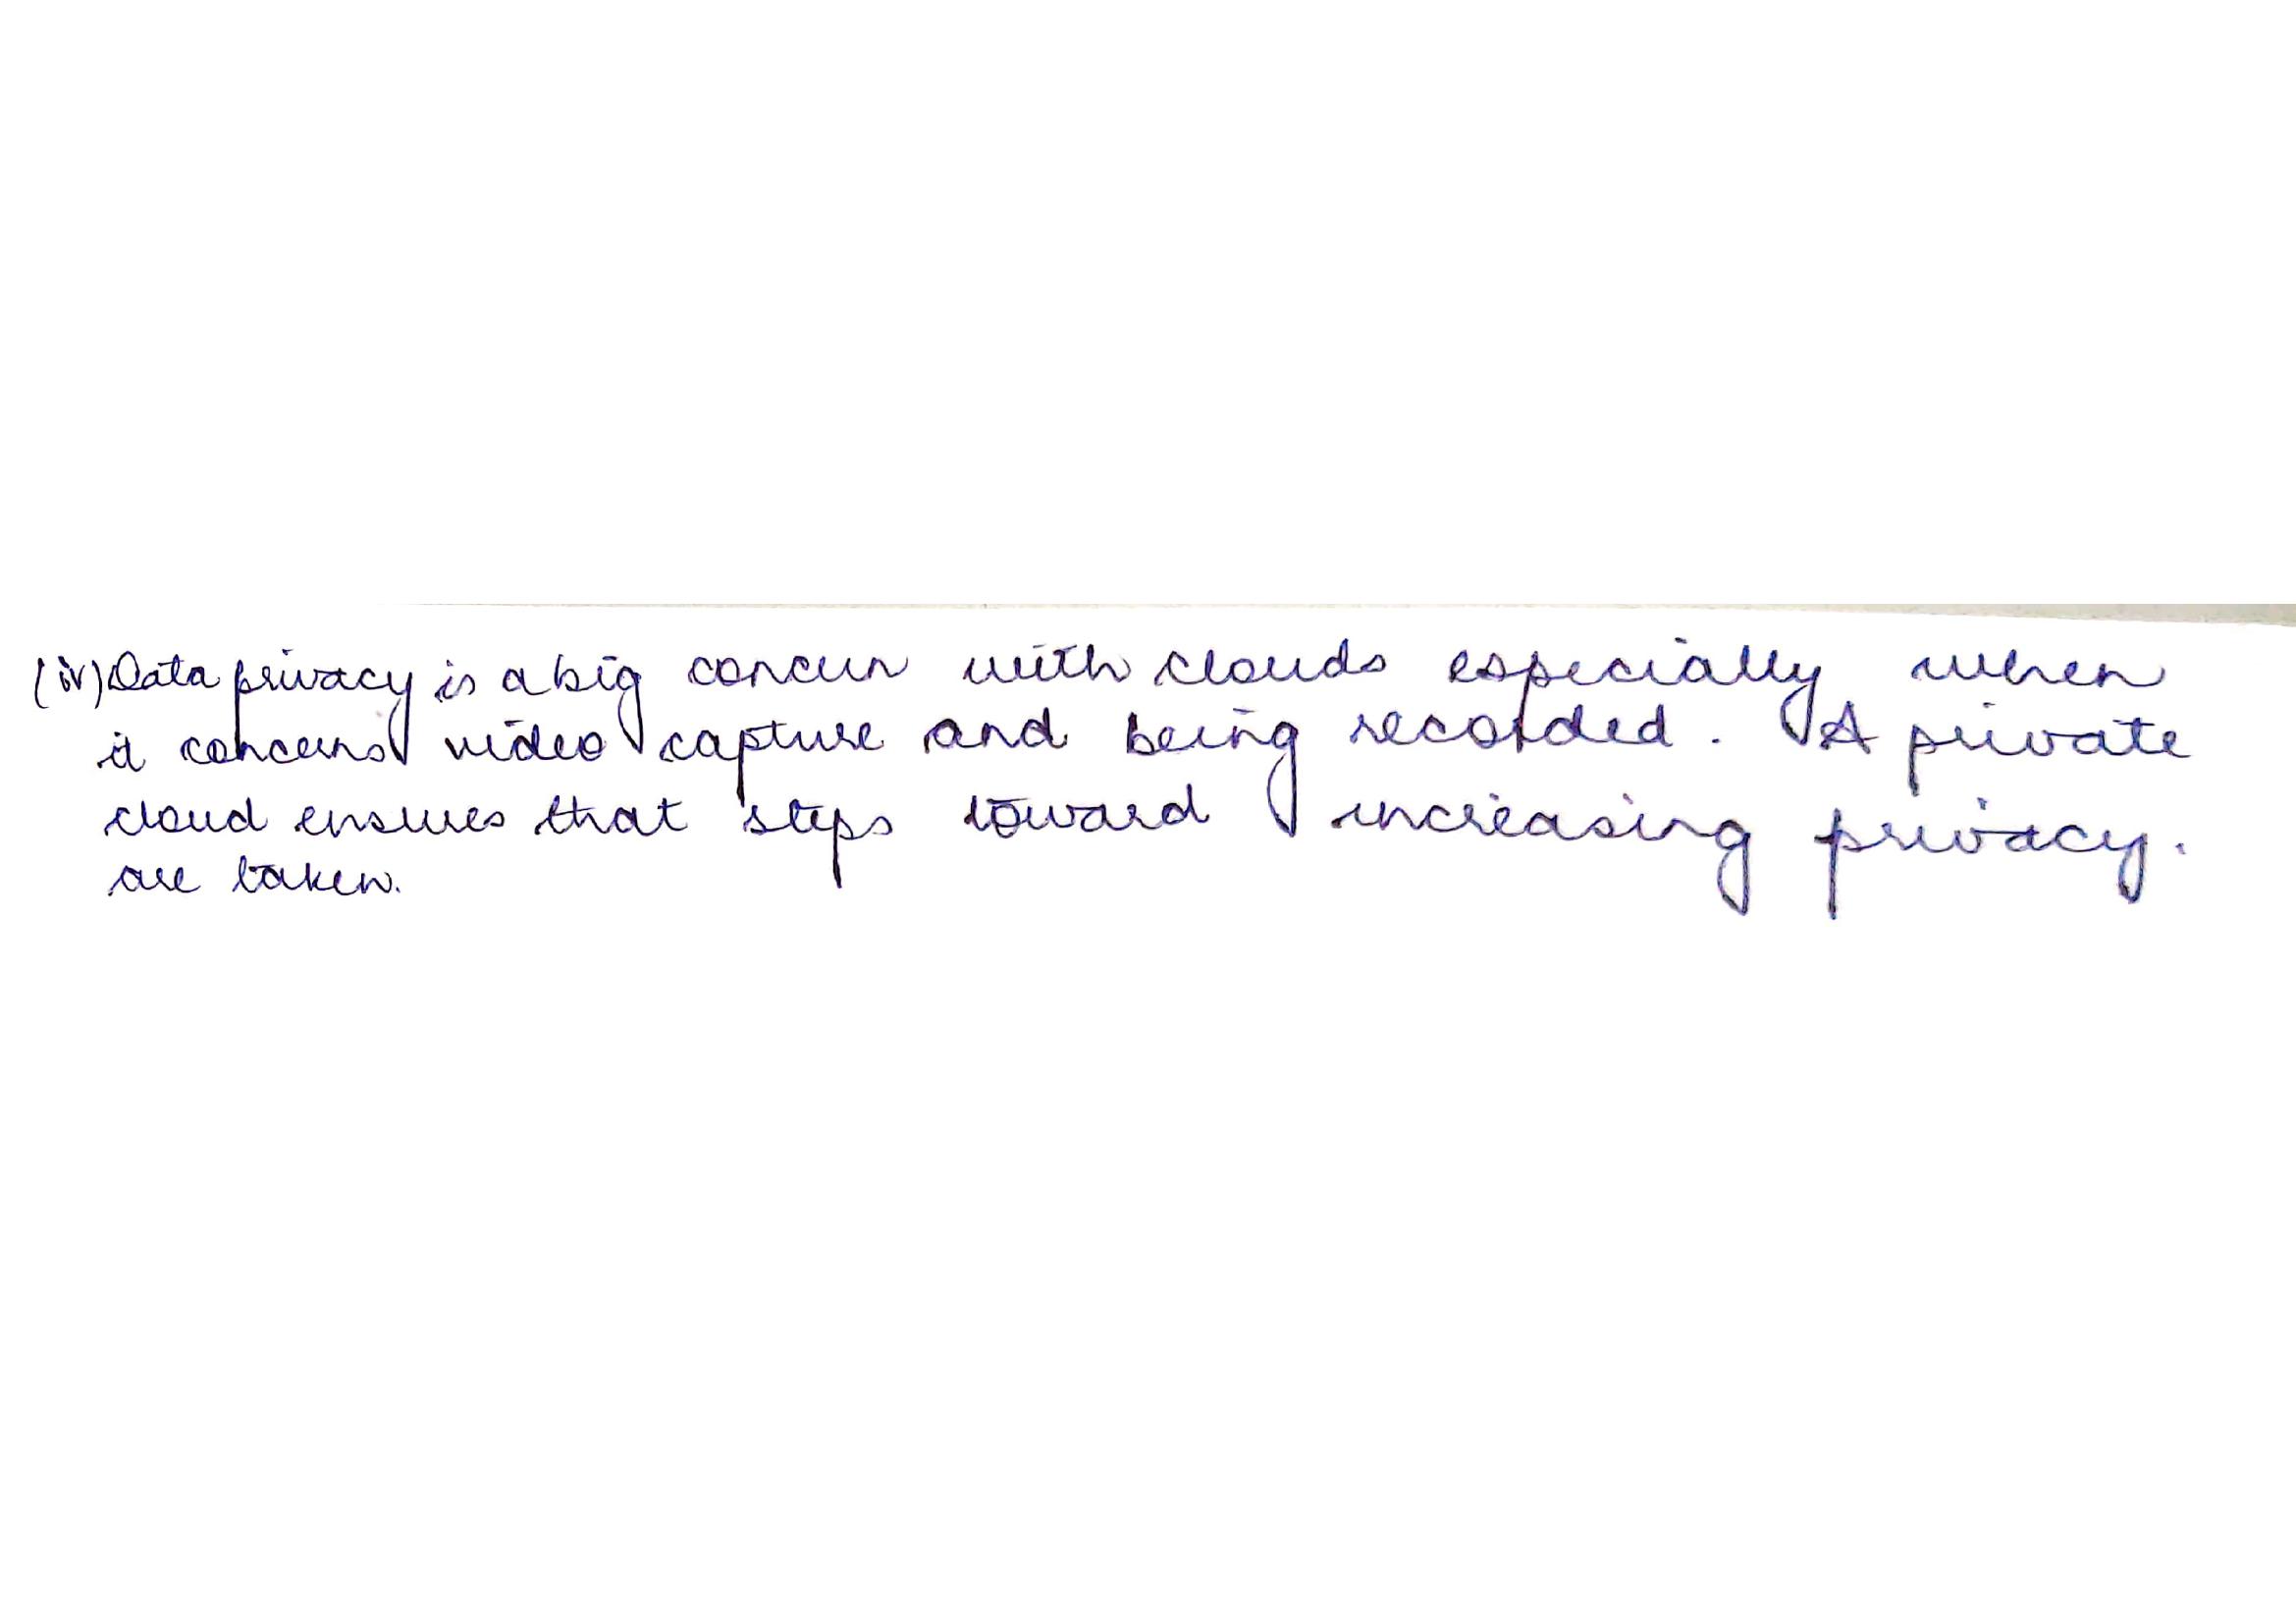 (iv) Data privacy is a big concern with clouds especially when
it concerns video capture and being recorded. A private
cloud ensures that steps toward increasing privacy.
are taken.